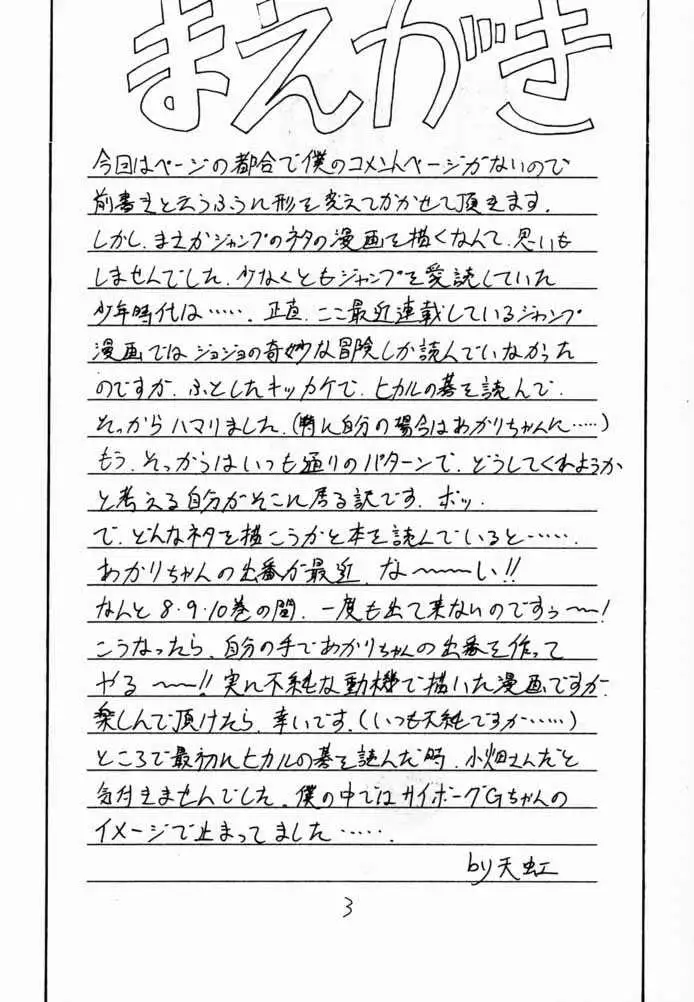 まえがき
今回はページの都合で僕のコメントページがないので
前書きと云うふうに形を変えてかかせて頂きます.
しかし、まさかジャンプのネタの漫画を描くなんて、思いも
しませんでした、少なくともジャンプを愛読していた
少年時代は……、正直、ここ最近連載しているジャンプ
漫画ではジョジョの奇妙な冒険しか読んでいなかった
のですが、ふとしたキッカケで、ヒカルの碁を読んで、
そっからハマりました、(特に自分の場合はあかりちゃんに……)
もう、そっからはいつも通りのパターンで、どうしてくれようか
と考える自分がそこに居る訳です、ポッ、
で、どんなネタを描こうかと本を読んでいると……、
あかりちゃんの出番が最近、な〜〜〜い!!
なんと8・9・10巻の間、一度も出て来ないのですぅ〜〜!
こうなったら、自分の手であかりちゃんの出番を作って
やる〜〜!!実に不純な動機で描いた漫画ですが、
楽しんで頂けたら、幸いです、(いつも不純ですが……)
ところで最初にヒカルの碁を読んだ時、小畑さんだと
気付きませんでした、僕の中ではサイボーグGちゃんの
イメージで止まってました……、
by天虹
3